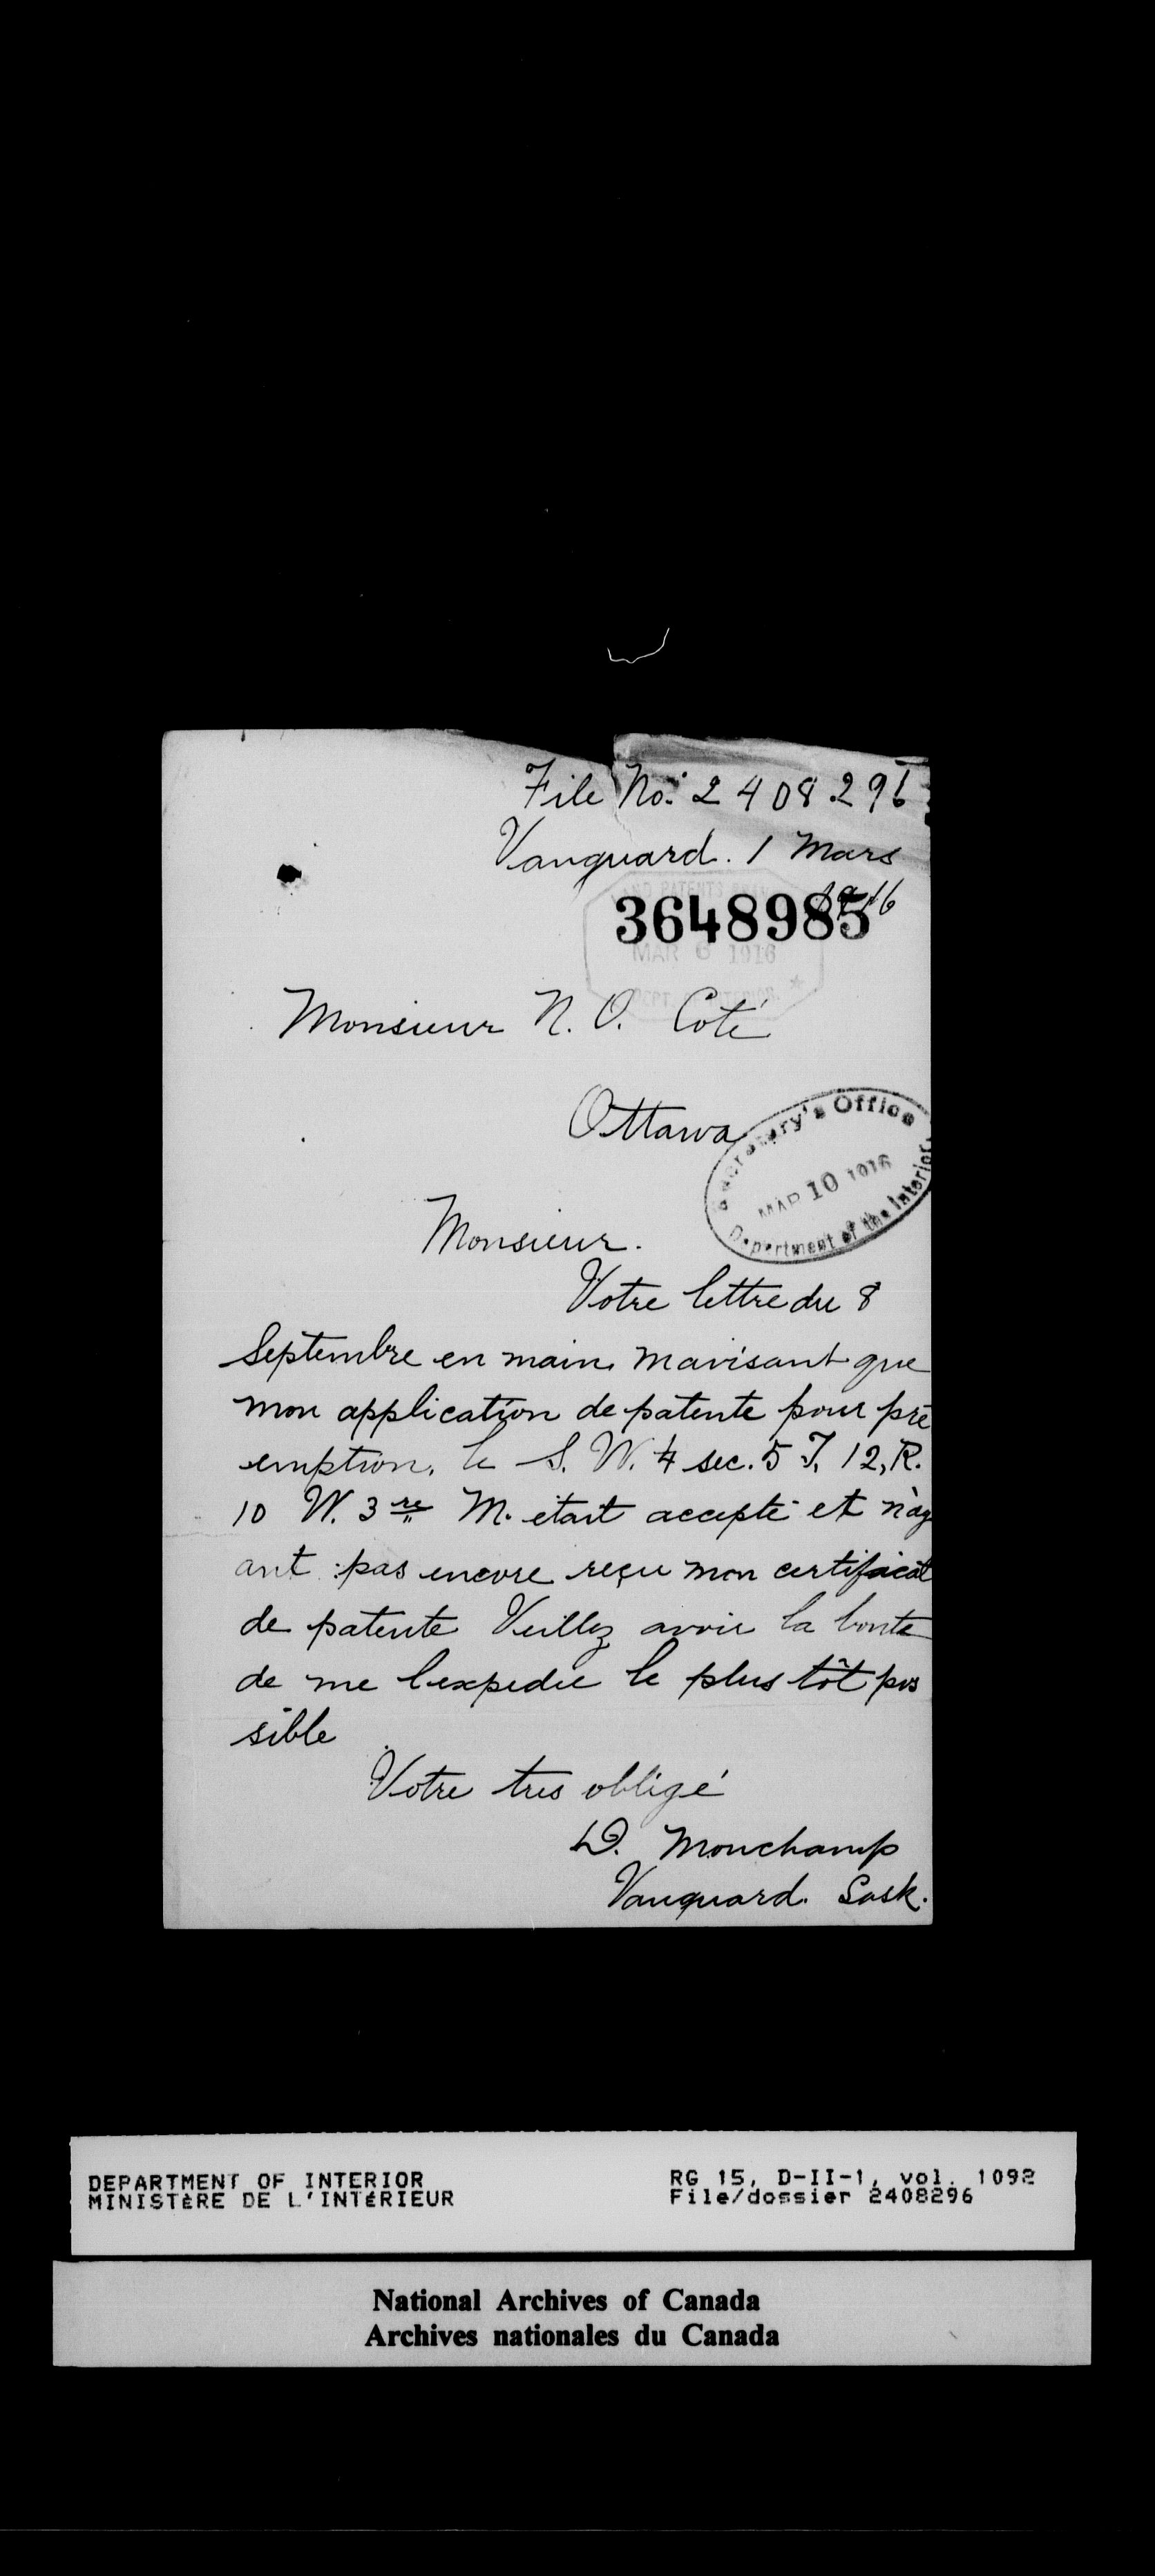 File No. 2408296
Vanguard. 1 Mars
1916
LAND PATENTS
3648985
MAR 6 1916
DEPT. INTERIOR
Monsieur N. O. Coté
Ottawa
Secretary's Office
MAR 10 1916
Department of the Interior
Monsieur.
Votre lettre du 8
Septembre en main. mavisant que
mon application de patente pour pre
emption. le S. W. 4 sec. 5 T. 12, R.
10 W. 3re M. etait accepté et n'ay
ant pas encore reçu mon certificat
de patente Veillez avoir la bonte
de me l'expedie le plus tôt pos
sible
Votre tres obligé
D. Monchamp
Vanguard. Sask.
DEPARTMENT OF INTERIOR
MINISTÈRE DE L'INTÉRIEUR
RG 15, D-II-1, vol. 1092
File/dossier 2408296
National Archives of Canada
Archives nationales du Canada